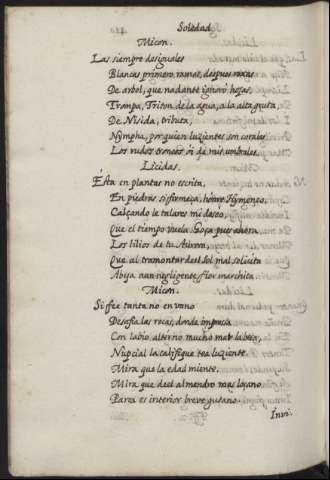 Soledad
Micon.
Las siempre desiguales
Blancas primero ramas, despues roxas
De arbol, que nadante ignorò hojas,
Trompa, Triton, de la agua, a la alta gruta
De Nisida, tributa,
Nympha, por quien luzientes son corales
Los rudos troncos oi de mis umbrales.
Licidas.
Esta en plantas no escrita,
En piedras si firmeza, honre Hymeneo,
Calçando le talares mi deseo,
Que el tiempo vuela. Goça pues ahora
Los lilios de tu Aurora,
Que al tramontar del Sol mal solicita
Abeja, aun negligente, flor marchita.
Micon.
Si fee tanta no en vano
Desafia las rocas, donde impressa
Con labio alterno mucho mar la besa,
Nupcial la califique tea luziente.
Mira que la edad miente,
Mira que de el almendro mas loçano
Parca es interior breve gusano.
Invi: